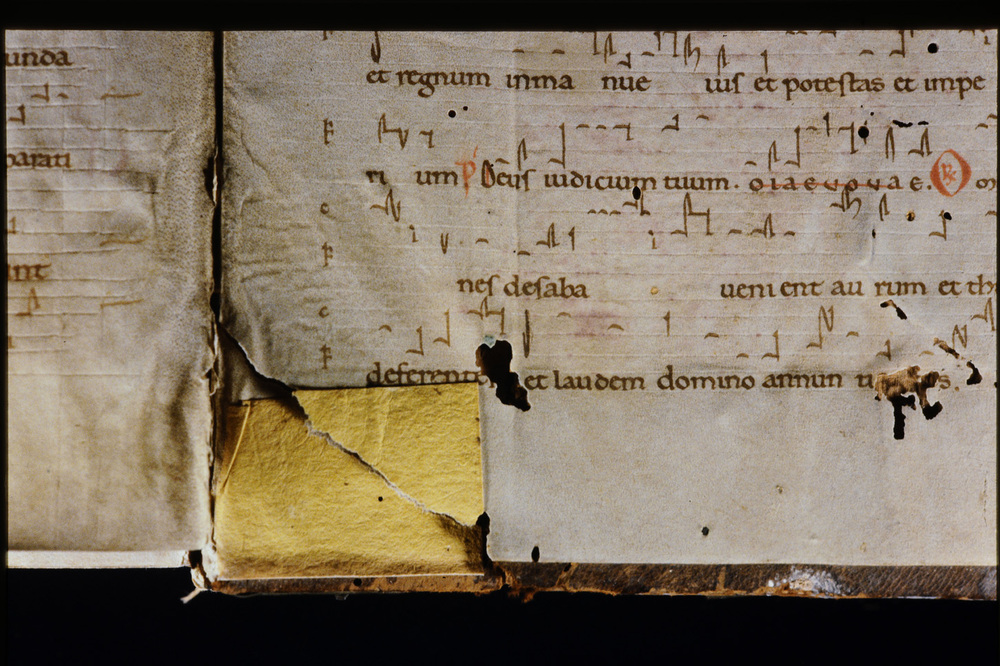 unda
parati
et regnum inma nue uis et potestas et impe
ri um P Deus iudicium tuum. oiaeuouae. R om
nes desaba uenient au rum et th
deferent et laudem domino annun